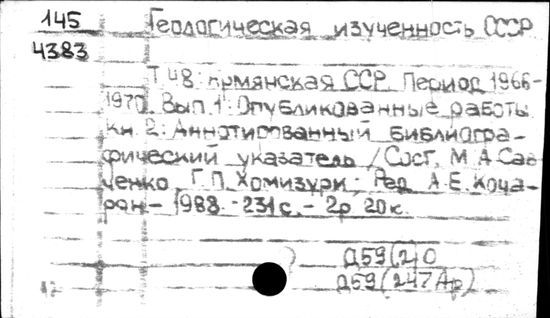 145 Геологическая изученность СССР
4383
Т 48: Армянская ССР. Период 1966-
1970. Вып. 1: Опубликованные работы.
Кн. 2: Аннотированный библиогра-
фический указатель / Сост. М.А. Сав-
ченко, Г.П. Хомизури; Ред. А.Е. Коча-
рян - 1988. - 231 с. - 2р 20к.
Д59(2)0
Д59(247Ар)